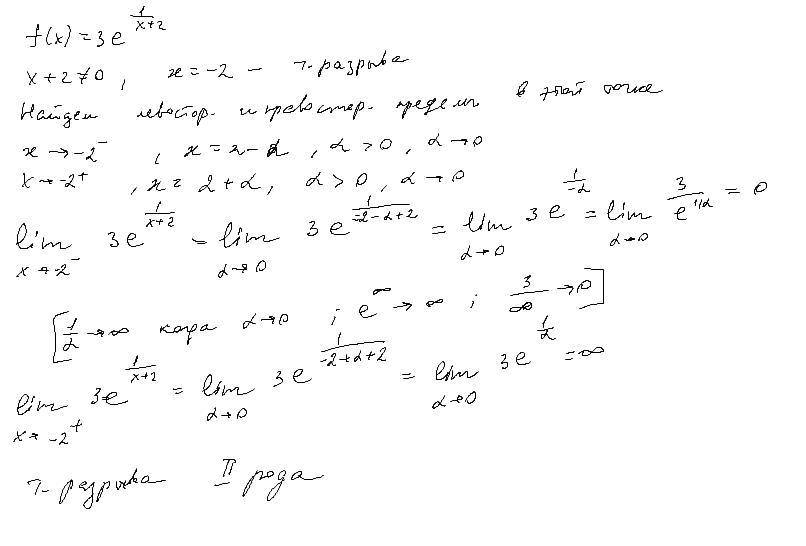 f(x) = 3e^{1/(x+2)}
x + 2 ≠ 0, x = -2 – т. разрыва
Найдем левостор. и правостор. пределы в этой точке
x → -2⁻, x = 2 - α, α > 0, α → 0
x → -2⁺, x = 2 + α, α > 0, α → 0
lim_{x → -2⁻} 3e^{1/(x+2)} = lim_{α → 0} 3e^{1/(-2-α+2)} = lim_{α → 0} 3e^{1/-α} = lim_{α → 0} 3/e^{1/α} = 0
[1/α → ∞ когда α → 0 ; e^∞ → ∞ ; 3/∞ → 0]
lim_{x → -2⁺} 3e^{1/(x+2)} = lim_{α → 0} 3e^{1/(-2+α+2)} = lim_{α → 0} 3e^{1/α} = ∞
т. разрыва II рода